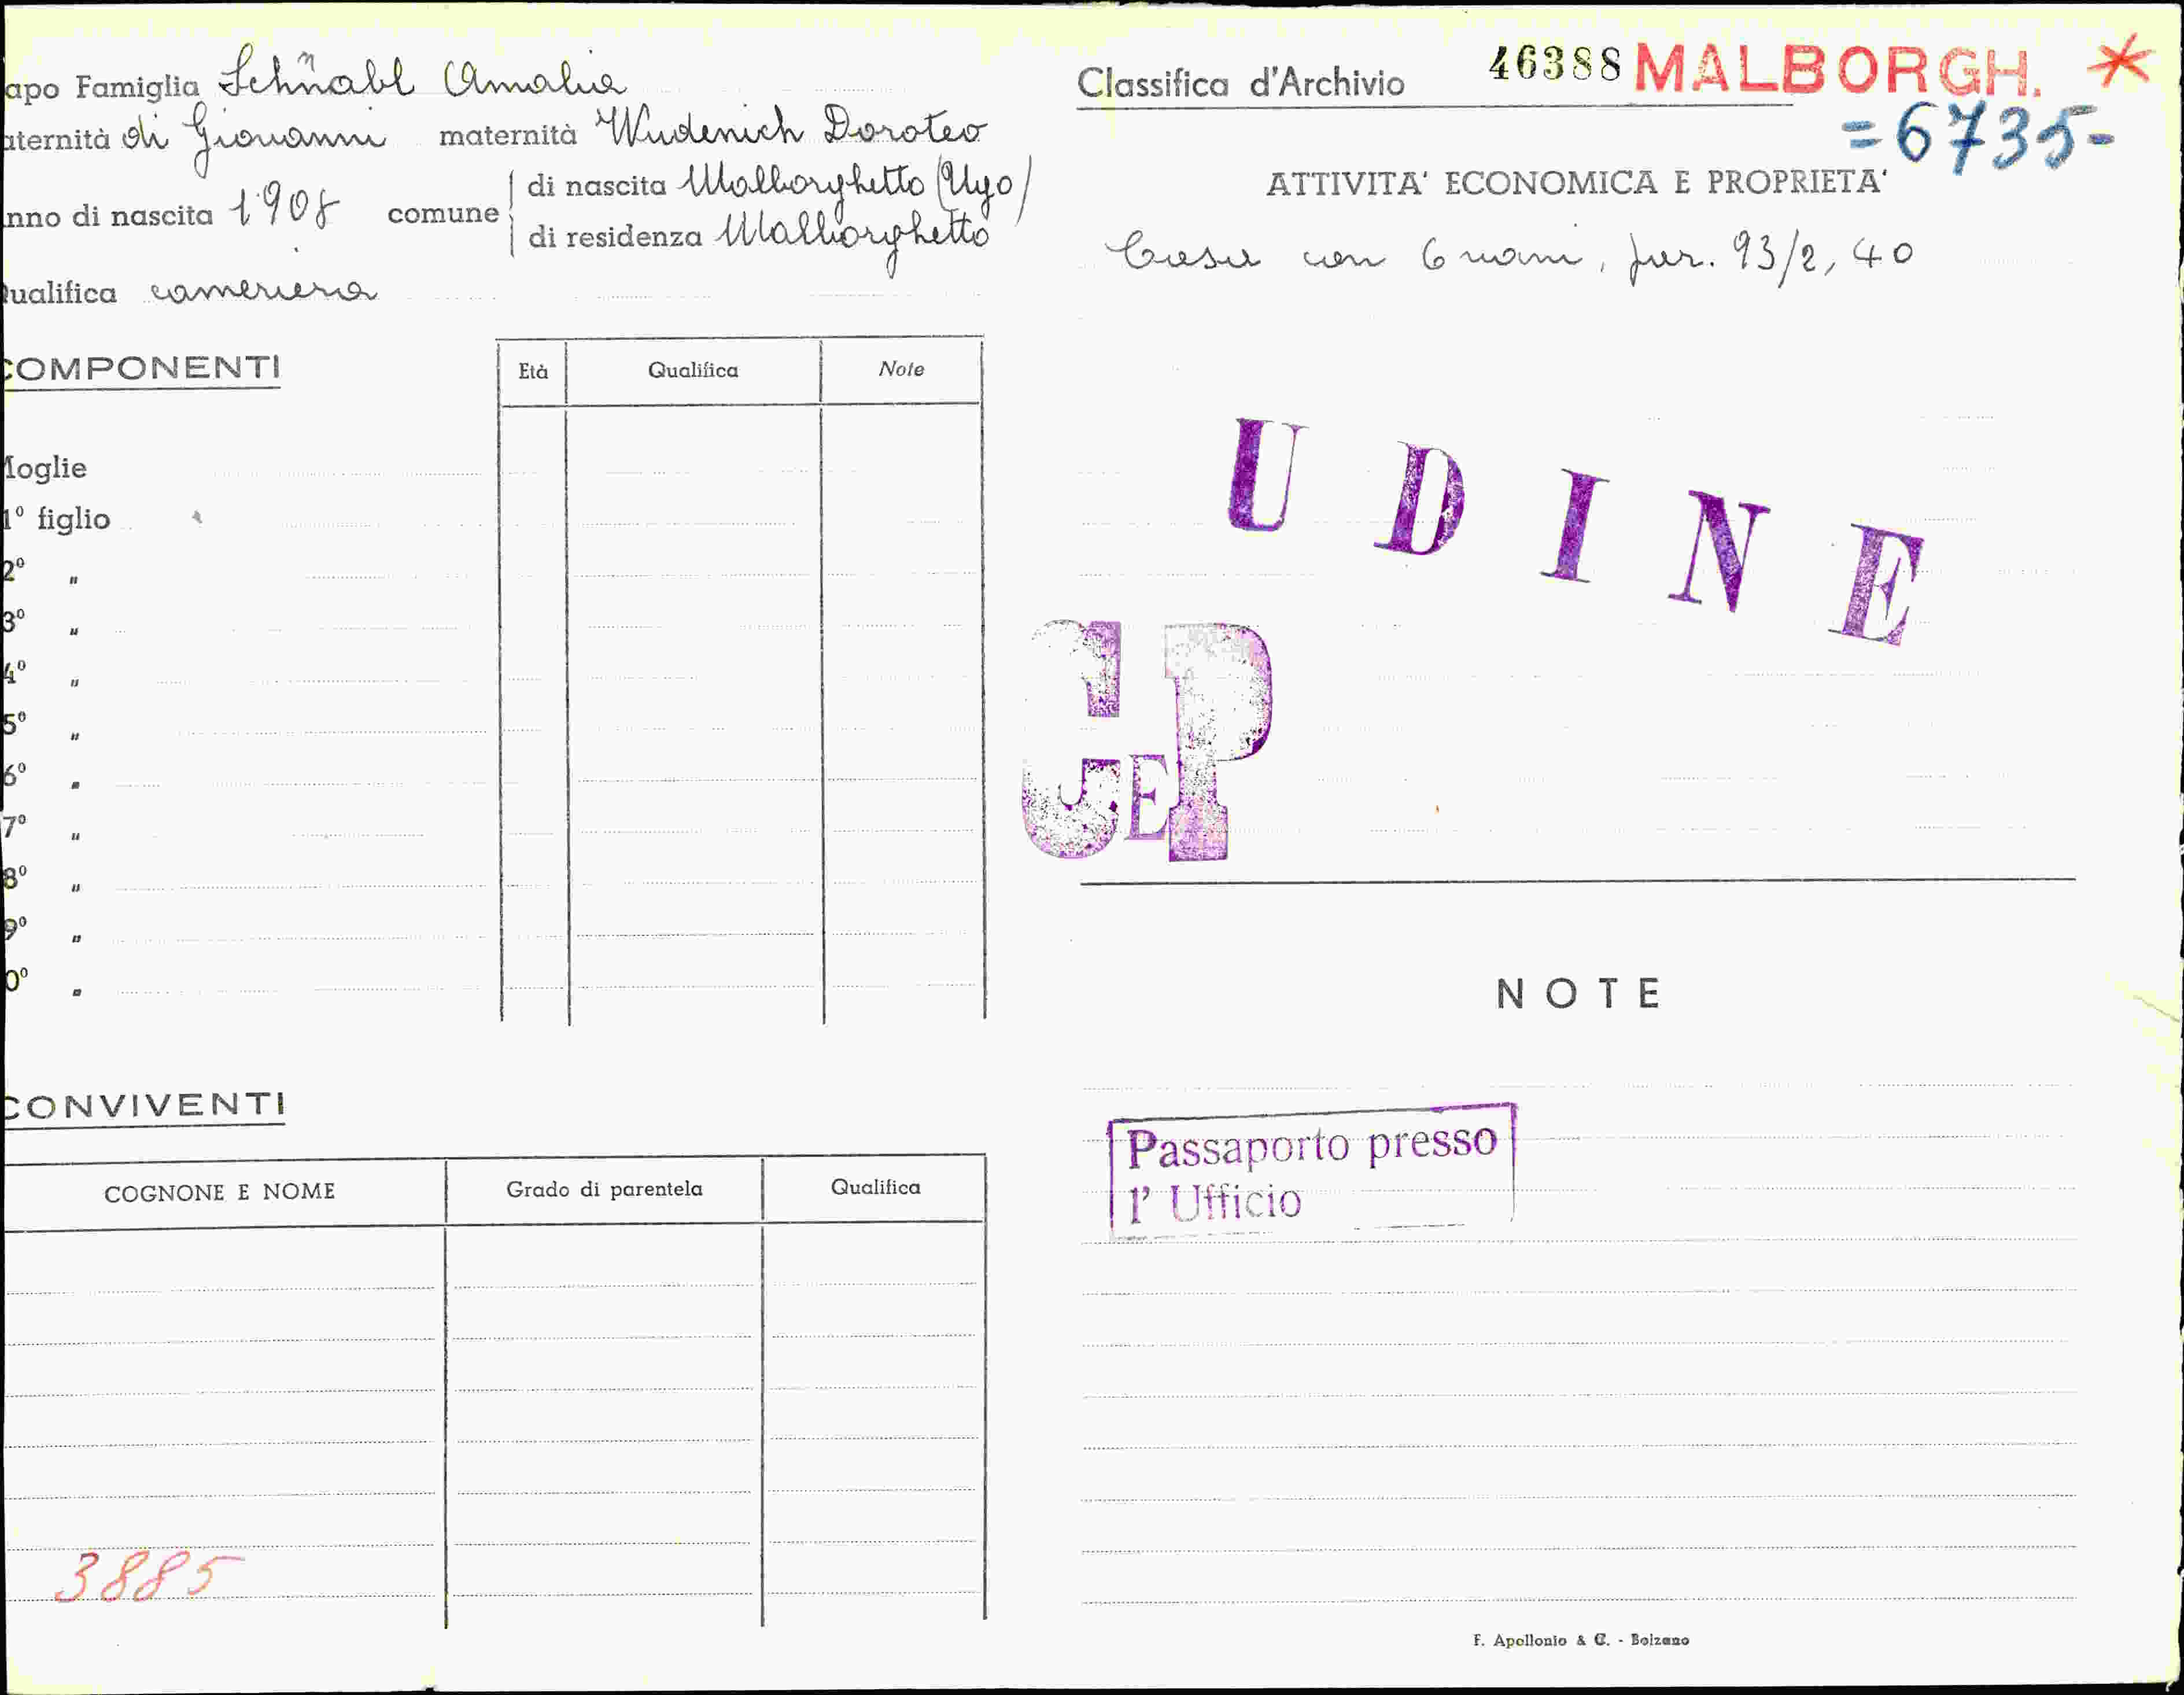 apo Famiglia Schnabl Amalia
aternità di Giovanni maternità Wudenich Dorotea
nno di nascita 1908 comune di nascita Malborghetto (Ugo)
di residenza Malborghetto
ualifica cameriera
COMPONENTI
Età Qualifica Note
Moglie
1º figlio
2º "
3º "
4º "
5º "
6º "
7º "
8º "
9º "
0º "
CONVIVENTI
COGNONE E NOME Grado di parentela Qualifica
3885
Classifica d'Archivio 46388 MALBORGH. *
=6735-
ATTIVITA' ECONOMICA E PROPRIETA'
Casa con 6 vani, 93/2, 40
UDINE
CEP
NOTE
Passaporto presso
l' Ufficio
F. Apollonio & C. - Bolzano